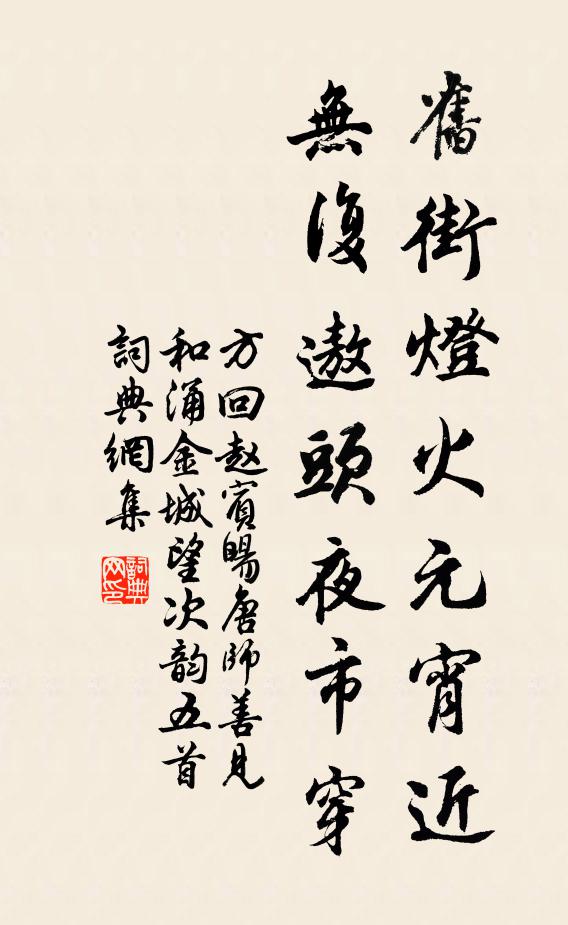 舊街燈火元宵近
無復遨頭夜市穿
方回赵賓暘唐師善見
和涌金城望次韵五首
詞典網集
詞典
网印